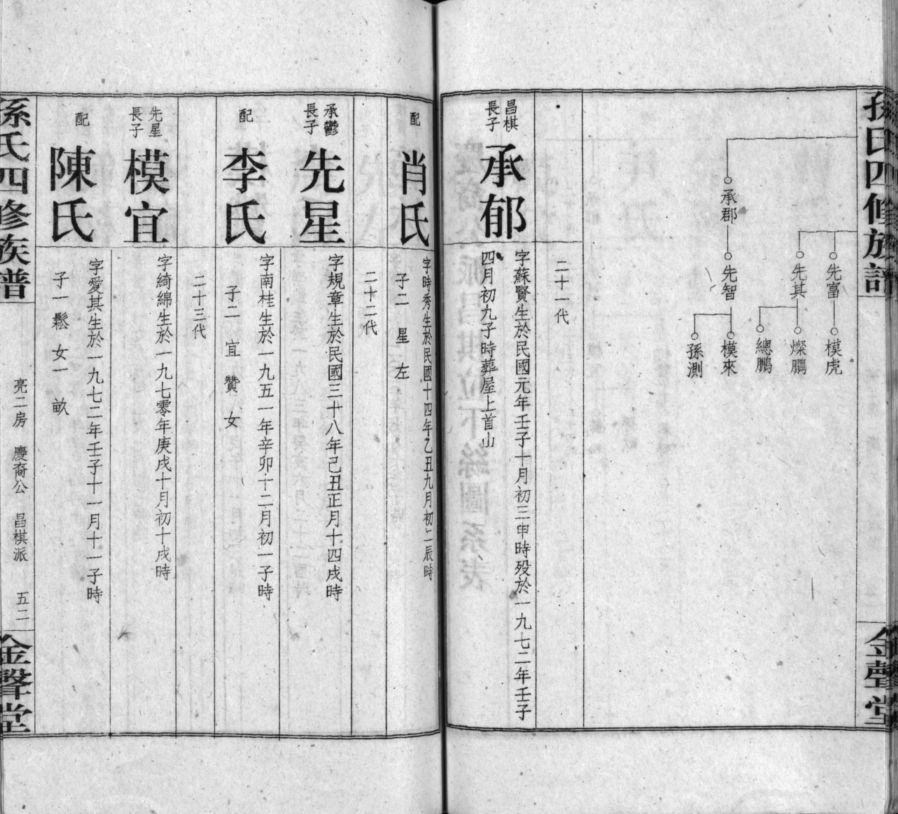 孫氏四修族譜
金聲堂
先富
模虎
先其
燦鵬
總鵬
承郡
先智
模來
孫測
二十一代
昌棋
長子
承郁
字蘇賢生於民國元年壬子十月初三申時殁於一九七二年壬子
四月初九子時葬屋上首山
配
肖氏
字時秀生於民國十四年乙丑九月初二辰時
子二 星 左
二十二代
承鬱
長子
先星
字規章生於民國三十八年己丑正月十四戌時
配
李氏
字南桂生於一九五一年辛卯十二月初一子時
子二 宜 贊 女
二十三代
先星
長子
模宜
字綺綿生於一九七零年庚戌十月初十戌時
配
陳氏
字愛其生於一九七二年壬子十一月十一子時
子一鬆 女一 畝
孫氏四修族譜
亮二房 慶裔公 昌棋派 五二
金聲堂